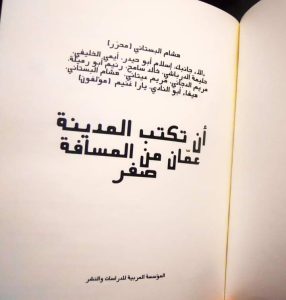 هشام البستاني [محرّر]
آلاء جانبك، إسلام أبو حيدر، أيمي الخليفي،
حليمة الدرباشي، خالد سامح، رنيم أبو رميلة،
مريم الدجاني، مريم ميتاني، هشام البستاني،
هيفاء أبو النادي، يارا غنيم [مؤلفون]
أن تكتب المدينة
عمّان من المسافة
صفر
المؤسسة العربية للدراسات والنشر